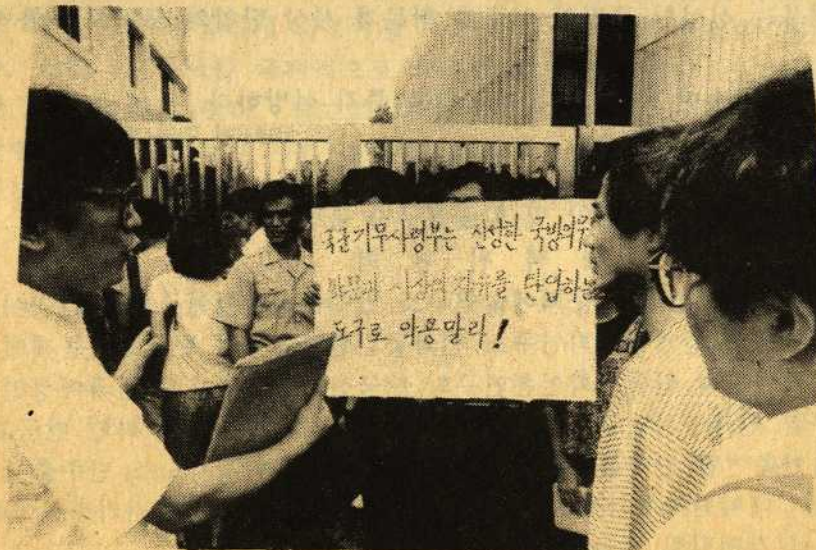 국군기무사령부는 신성한 국방의무
학문과 사상의 자유를 탄압하는
도구로 악용말라!